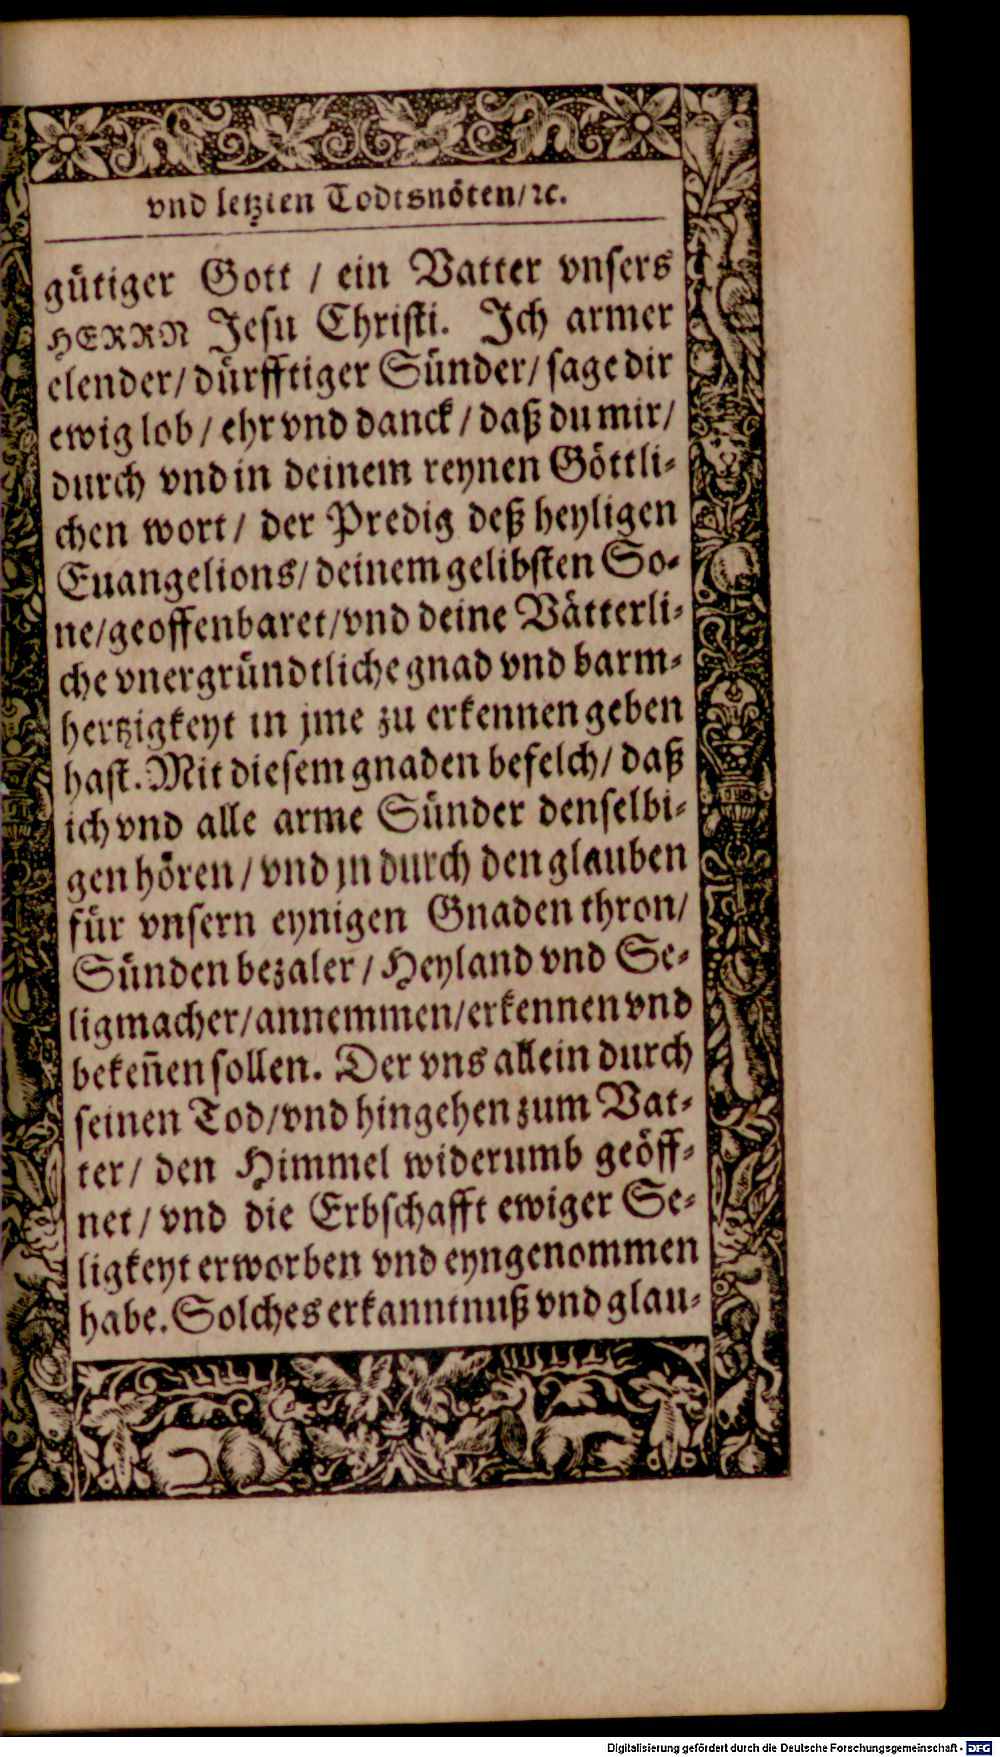 vnd letzten Todtsnöten/ꝛc.
gütiger Gott / ein Vatter vnsers
HERRN Jesu Christi. Jch armer
elender/ dürfftiger Sünder/ sage dir
ewig lob / ehr vnd danck / daß du mir/
durch vnd in deinem reynen Göttli-
chen wort/ der Predig deß heyligen
Euangelions/ deinem gelibsten So-
ne/geoffenbaret/vnd deine Vätterli-
che vnergründtliche gnad vnd barm-
hertzigkeyt in jme zu erkennen geben
hast. Mit diesem gnaden befelch/ daß
ich vnd alle arme Sünder denselbi-
gen hören / vnd jn durch den glauben
für vnsern eynigen Gnaden thron/
Sünden bezaler / Heyland vnd Se-
ligmacher/annemmen/erkennen vnd
bekeñen sollen. Der vns allein durch
seinen Tod/vnd hingehen zum Vat-
ter/ den Himmel widerumb geöff-
net / vnd die Erbschafft ewiger Se-
ligkeyt erworben vnd eyngenommen
habe. Solches erkanntnuß vnd glau-
Digitalisierung gefördert durch die Deutsche Forschungsgemeinschaft - DFG